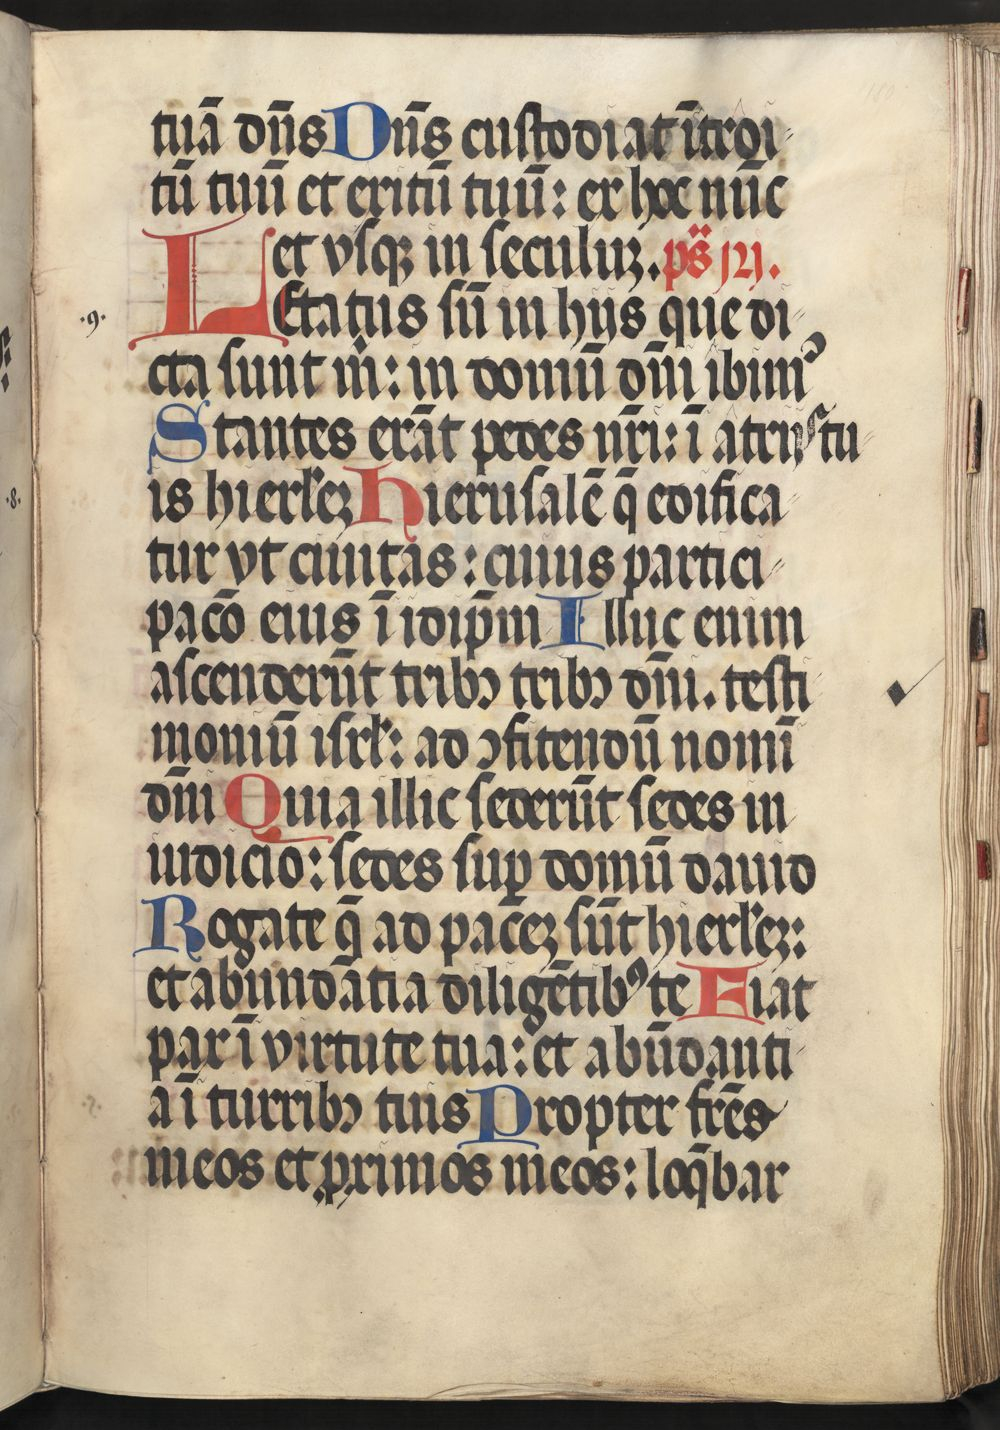 tuā dn̄s Dn̄s custodiat ītroi-
tū tuū et exitū tuū: ex hoc nūc
et vsqꝫ in seculuꝫ. ps̄ ȷ2ȷ.
LEtatus sū in hijs que di-
·9·
cta sunt m̄: in domū dn̄i ibimꝰ
Stantes erāt pedes nr̄i: ī atrijs tu-
is hierl̄eꝫ hierusalē q̄ edifica-
·8·
tur vt ciuitas: cuius partici-
pacō eius ī idip̄m Illuc enim
ascenderūt tribꝰ tribꝰ dn̄i. testi
moniū isrl̄: ad ↄfitendū nomī
dn̄i Quia illic sederūt sedes in
iudicio: sedes suꝑ domū dauid
Rogate q̄ ad paceꝫ sūt hierl̄eꝫ:
et abundātia diligētibꝰ te Fiat
pax ī virtute tua: et abūdanti-
a ī turribꝰ tuis Propter fr̄es
meos et ꝓximos meos: loq̄bar